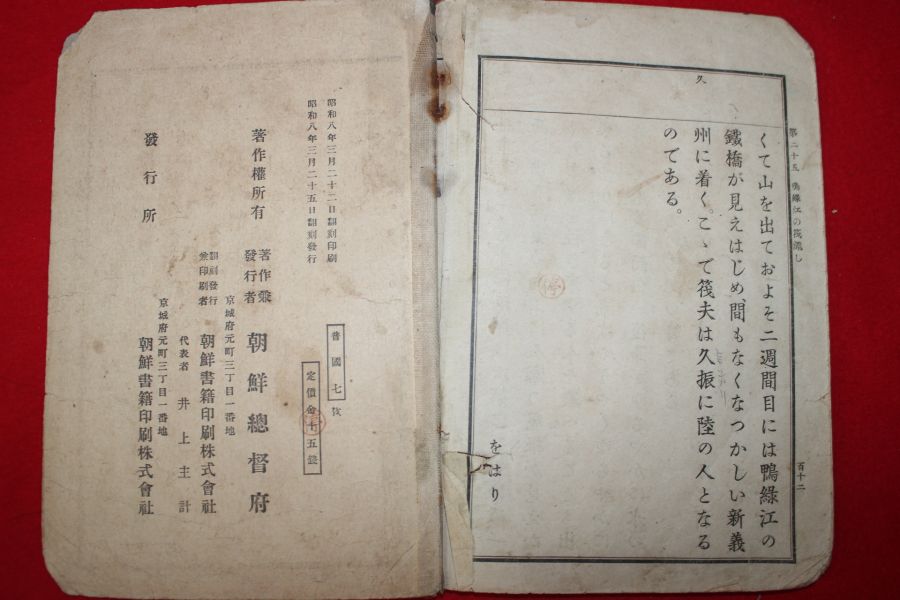 久
第二十五 鴨綠江の筏流し
百十二
くて山を出ておよそ二週間目には鴨綠江の
鐵橋が見えはじめ、間もなくなつかしい新義
州に着く。こゝで筏夫は久振に陸の人となる
のである。
をはり
昭和八年三月二十二日翻刻印刷
昭和八年三月二十五日翻刻發行
普國七
定價金十五錢
著作權所有
著作兼
發行者
朝鮮總督府
京城府元町三丁目一番地
翻刻發行
兼印刷者
朝鮮書籍印刷株式會社
代表者 井上主計
京城府元町三丁目一番地
發行所
朝鮮書籍印刷株式會社